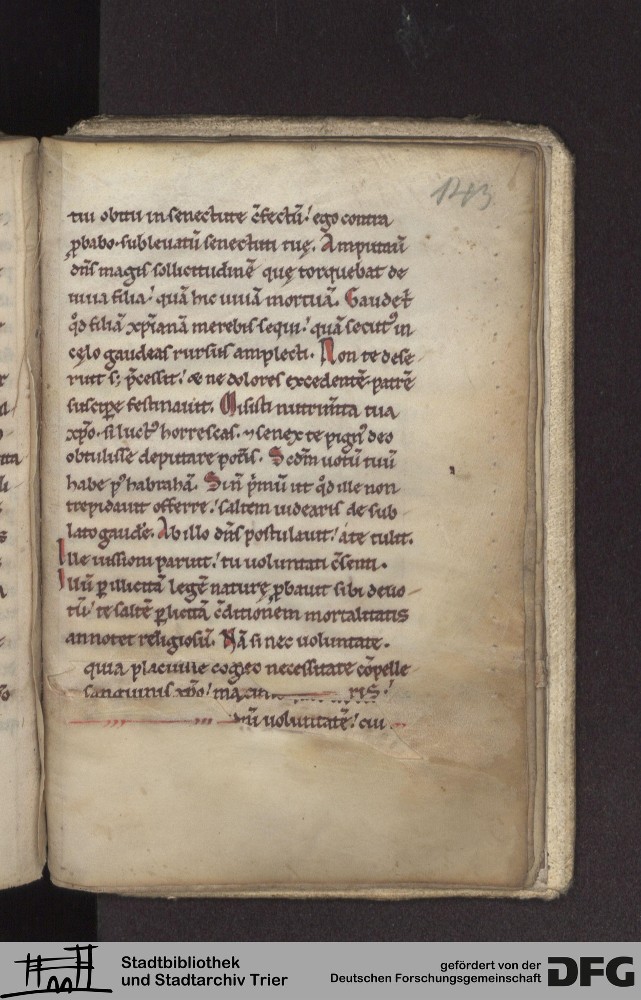 143
tui obitu in senectute c̄fectū! ego contra
ꝓbabo. subleuatū senectuti tuę. Amputauū
dn̄s magis sollicitudinē quę torquebat de
uiua filia! quā hic uiuā mortuā. Gaudet̄
qd̓ filiā xp̄ianā merebis sequi! quā secut᷒ in
cęlo gaudeas rursus amplecti. Non te dese-
ruit s; p̄cessit! & ne dolores excedentē patrē
suscipe festinauit. Misisti nutrim̄ta tua
xp̄o. si luct᷒ horrescas. ⁊ senex te pign᷒ deo
obtulisse deputare potīs. Scdm̄ uotū tuū
habe p᷒ habrahā. Sin p̄mū ut qd̓ ille non
trepidauit offerre! saltem uidearis de sub-
lato gaudere. Ab illo dn̄s postulauit! a te tulit.
Ille iussioni paruit! tu uoluntati c̄senti.
Illū ꝑ illicitā legē naturę ꝓbauit sibi deuo-
tū! te saltē ꝑ licitā c̄ditionem mortalitatis
annotet religiosū. Nā si nec uoluntate.
quia placuit cogeo necessitate cōpelle-
sanguinis xp̄o! ris!
uoluntatē! cui
Stadtbibliothek
und Stadtarchiv Trier
gefördert von der
Deutschen Forschungsgemeinschaft
DFG